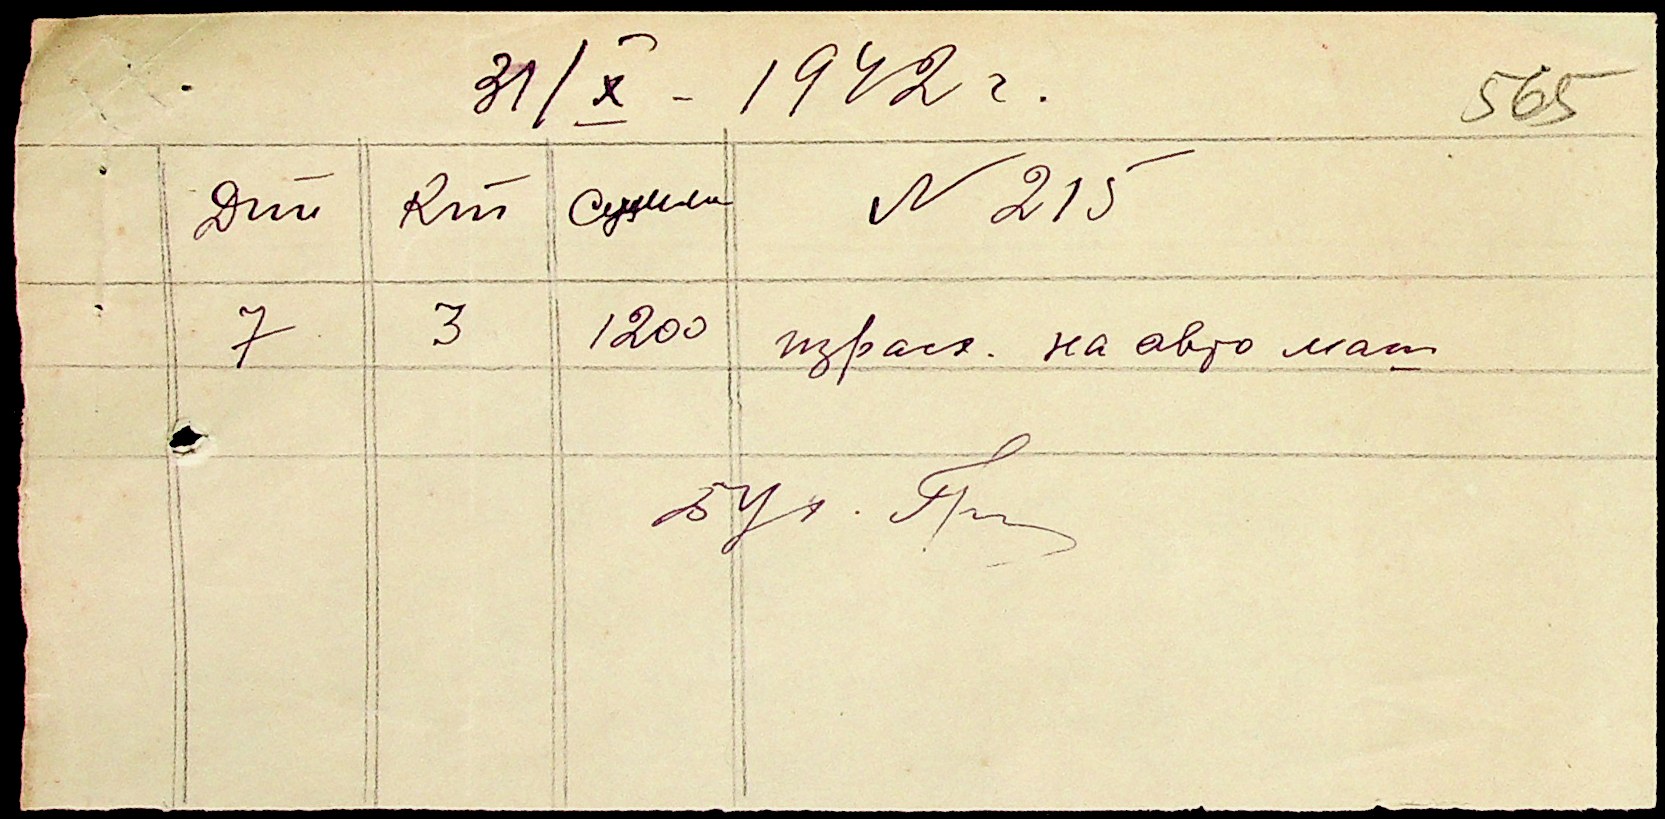 31/X - 1942 г.
565
Дт Кт Сумма N 215
7 3 1200 израсх. на авто маш
Бух.